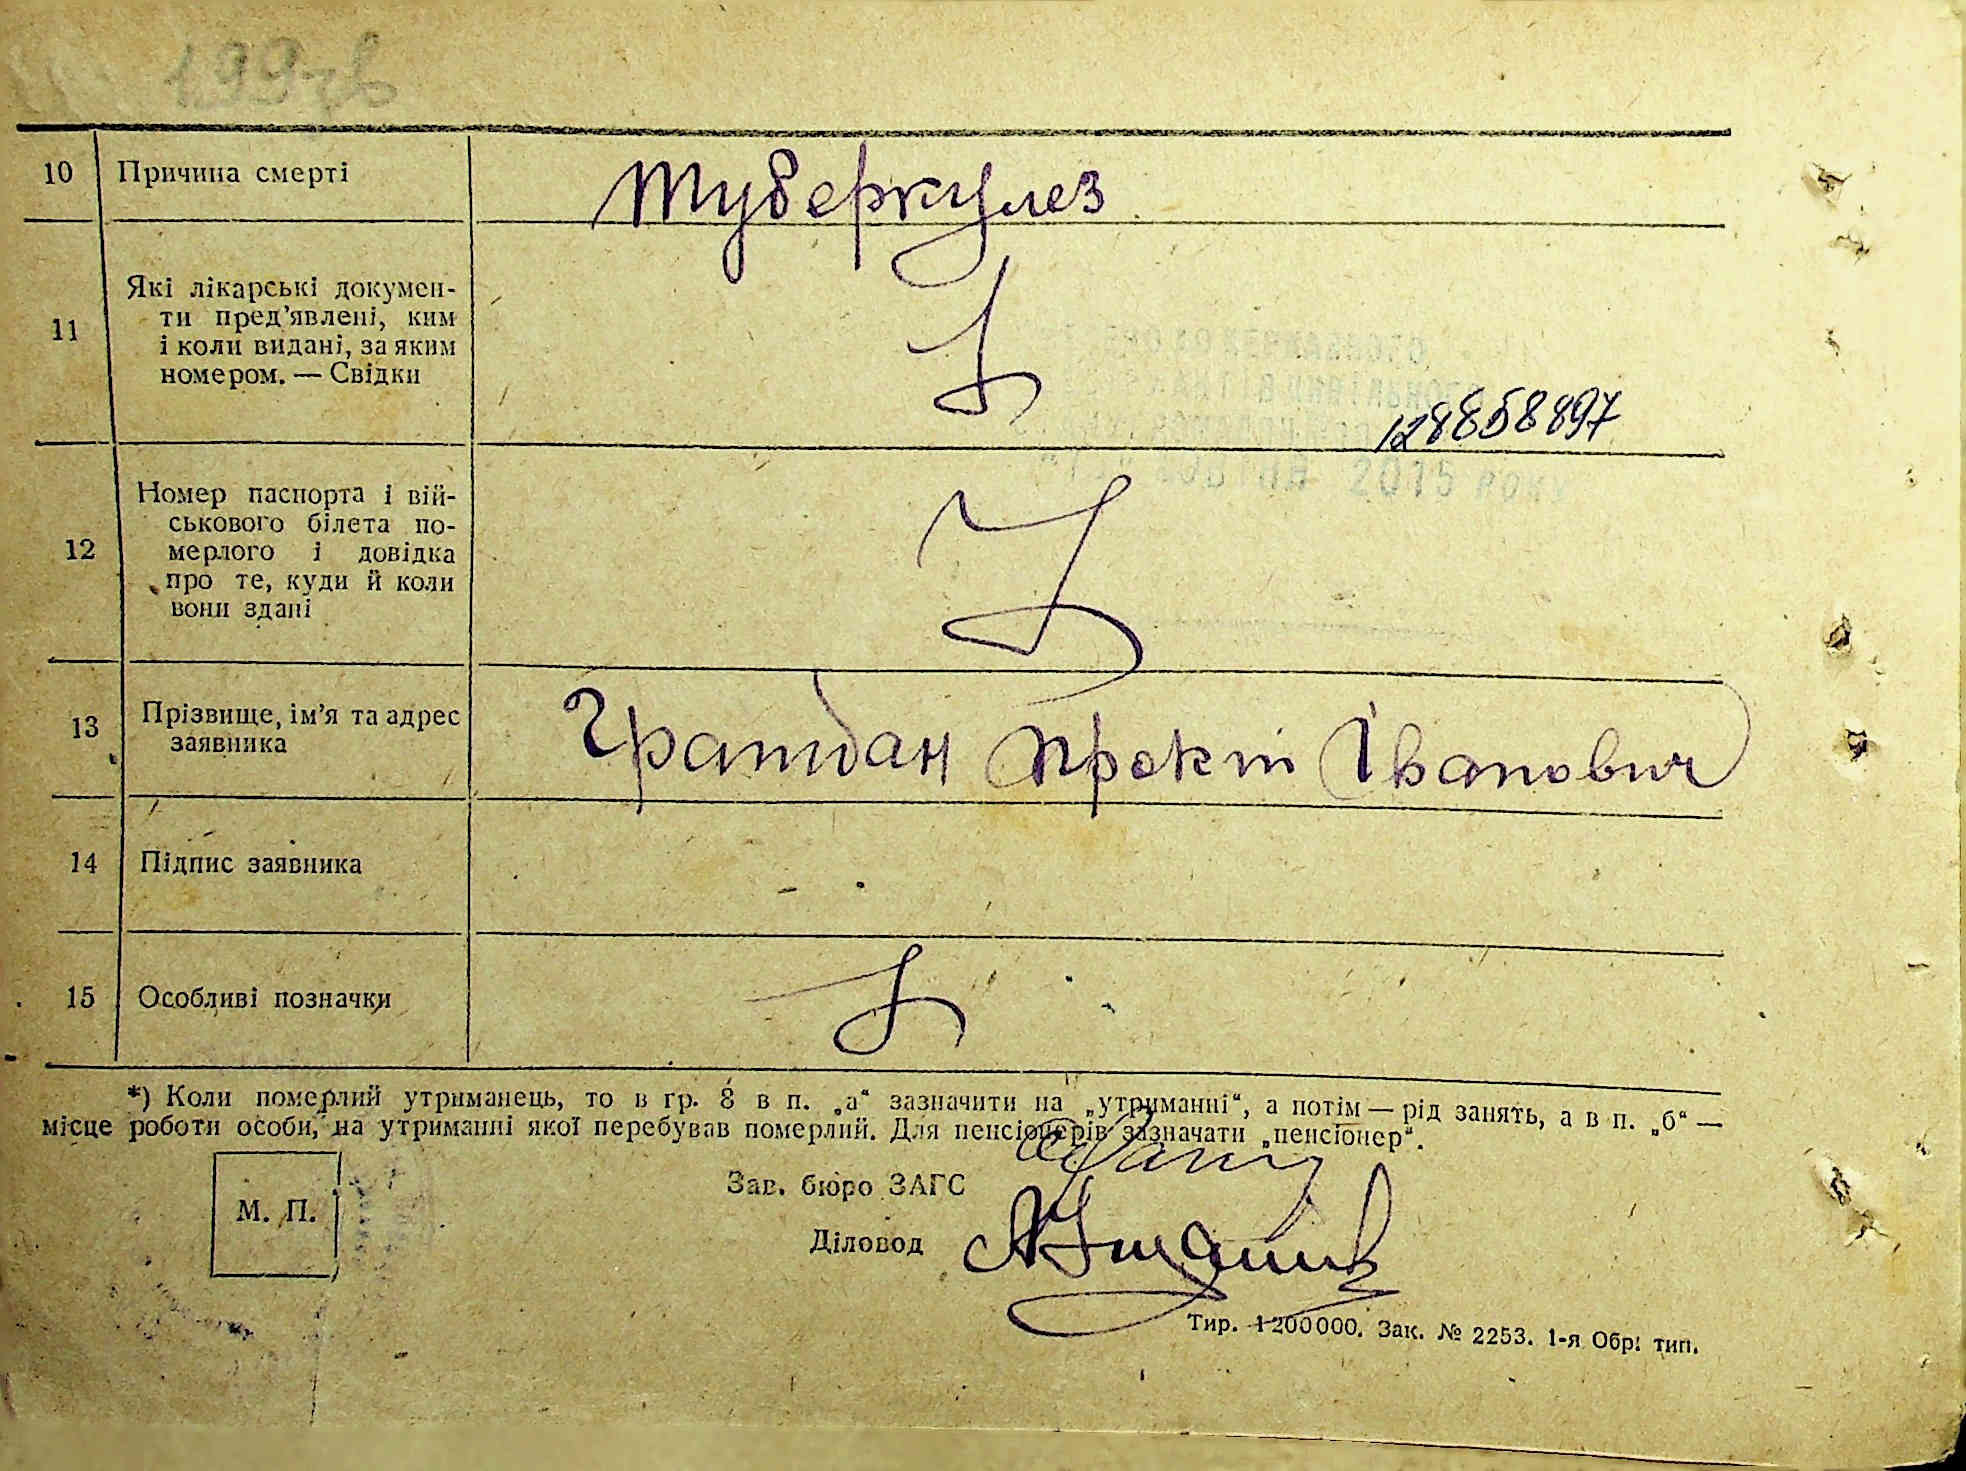 10 Причина смерті Туберкулез
11 Які лікарські докумен-
ти пред’явлені, ким
і коли видані, за яким
номером. — Свідки
128858897
12 Номер паспорта і вій-
ськового білета по-
мерлого і довідка
про те, куди й коли
вони здані
2015 РОКУ
13 Прізвище, ім’я та адрес
заявника
Іванович
14 Підпис заявника
15 Особливі позначки
*) Коли померлий утриманець, то в гр. 8 в п. „а“ зазначити на „утриманні“, а потім — рід занять, а в п. „б“ —
місце роботи особи, на утриманні якої перебував померлий. Для пенсіонерів зазначати „пенсіонер“.
М. П.
Зав. бюро ЗАГС
Діловод
Тир. 1200000. Зак. № 2253. 1-я Обр. тип.